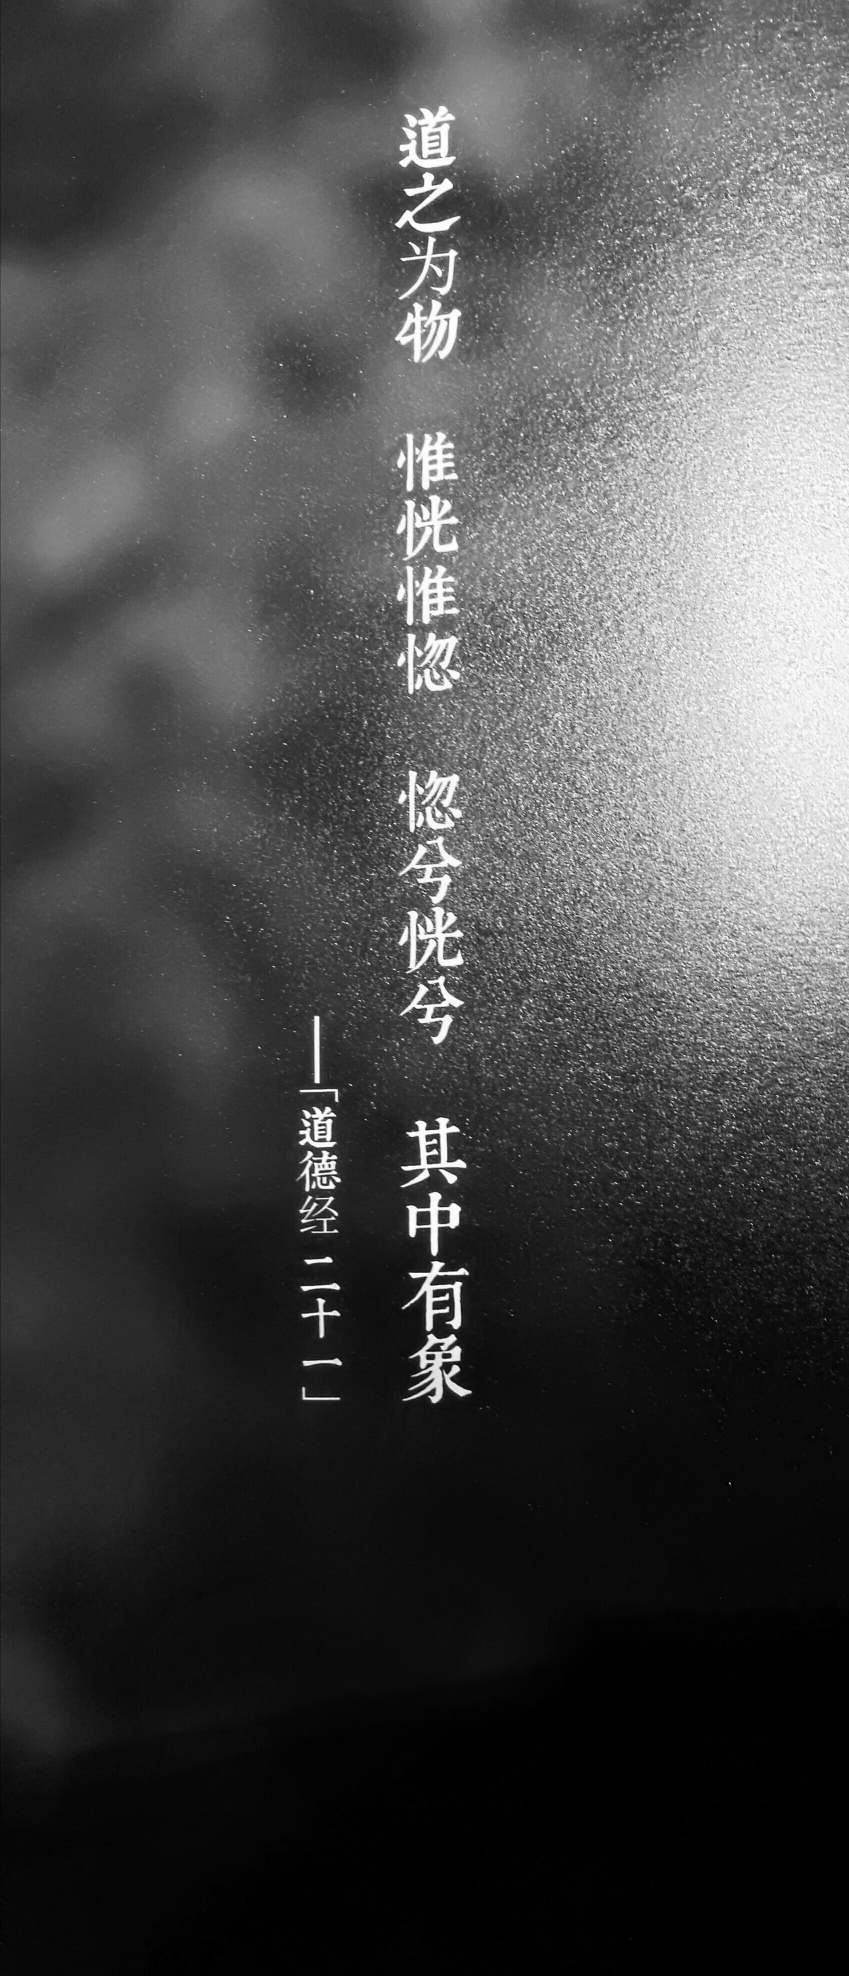 道之为物 惟恍惟惚 惚兮恍兮 其中有象
——「道德经 二十一」